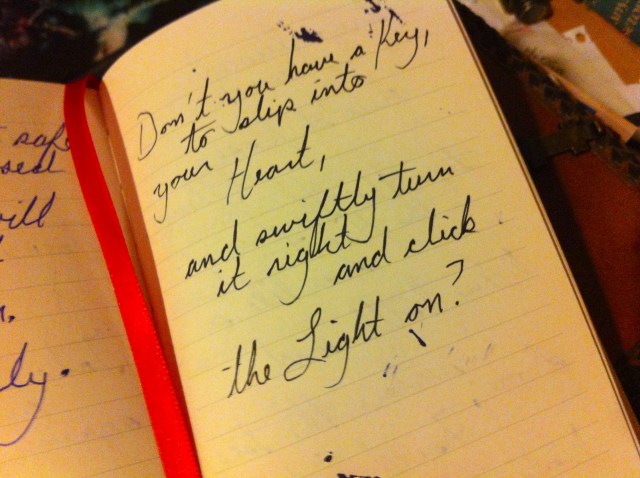 safe
sed
ill
ly.
Don't you have a Key,
to slip into
your Heart,
and swiftly turn
it right
and click
the Light on?